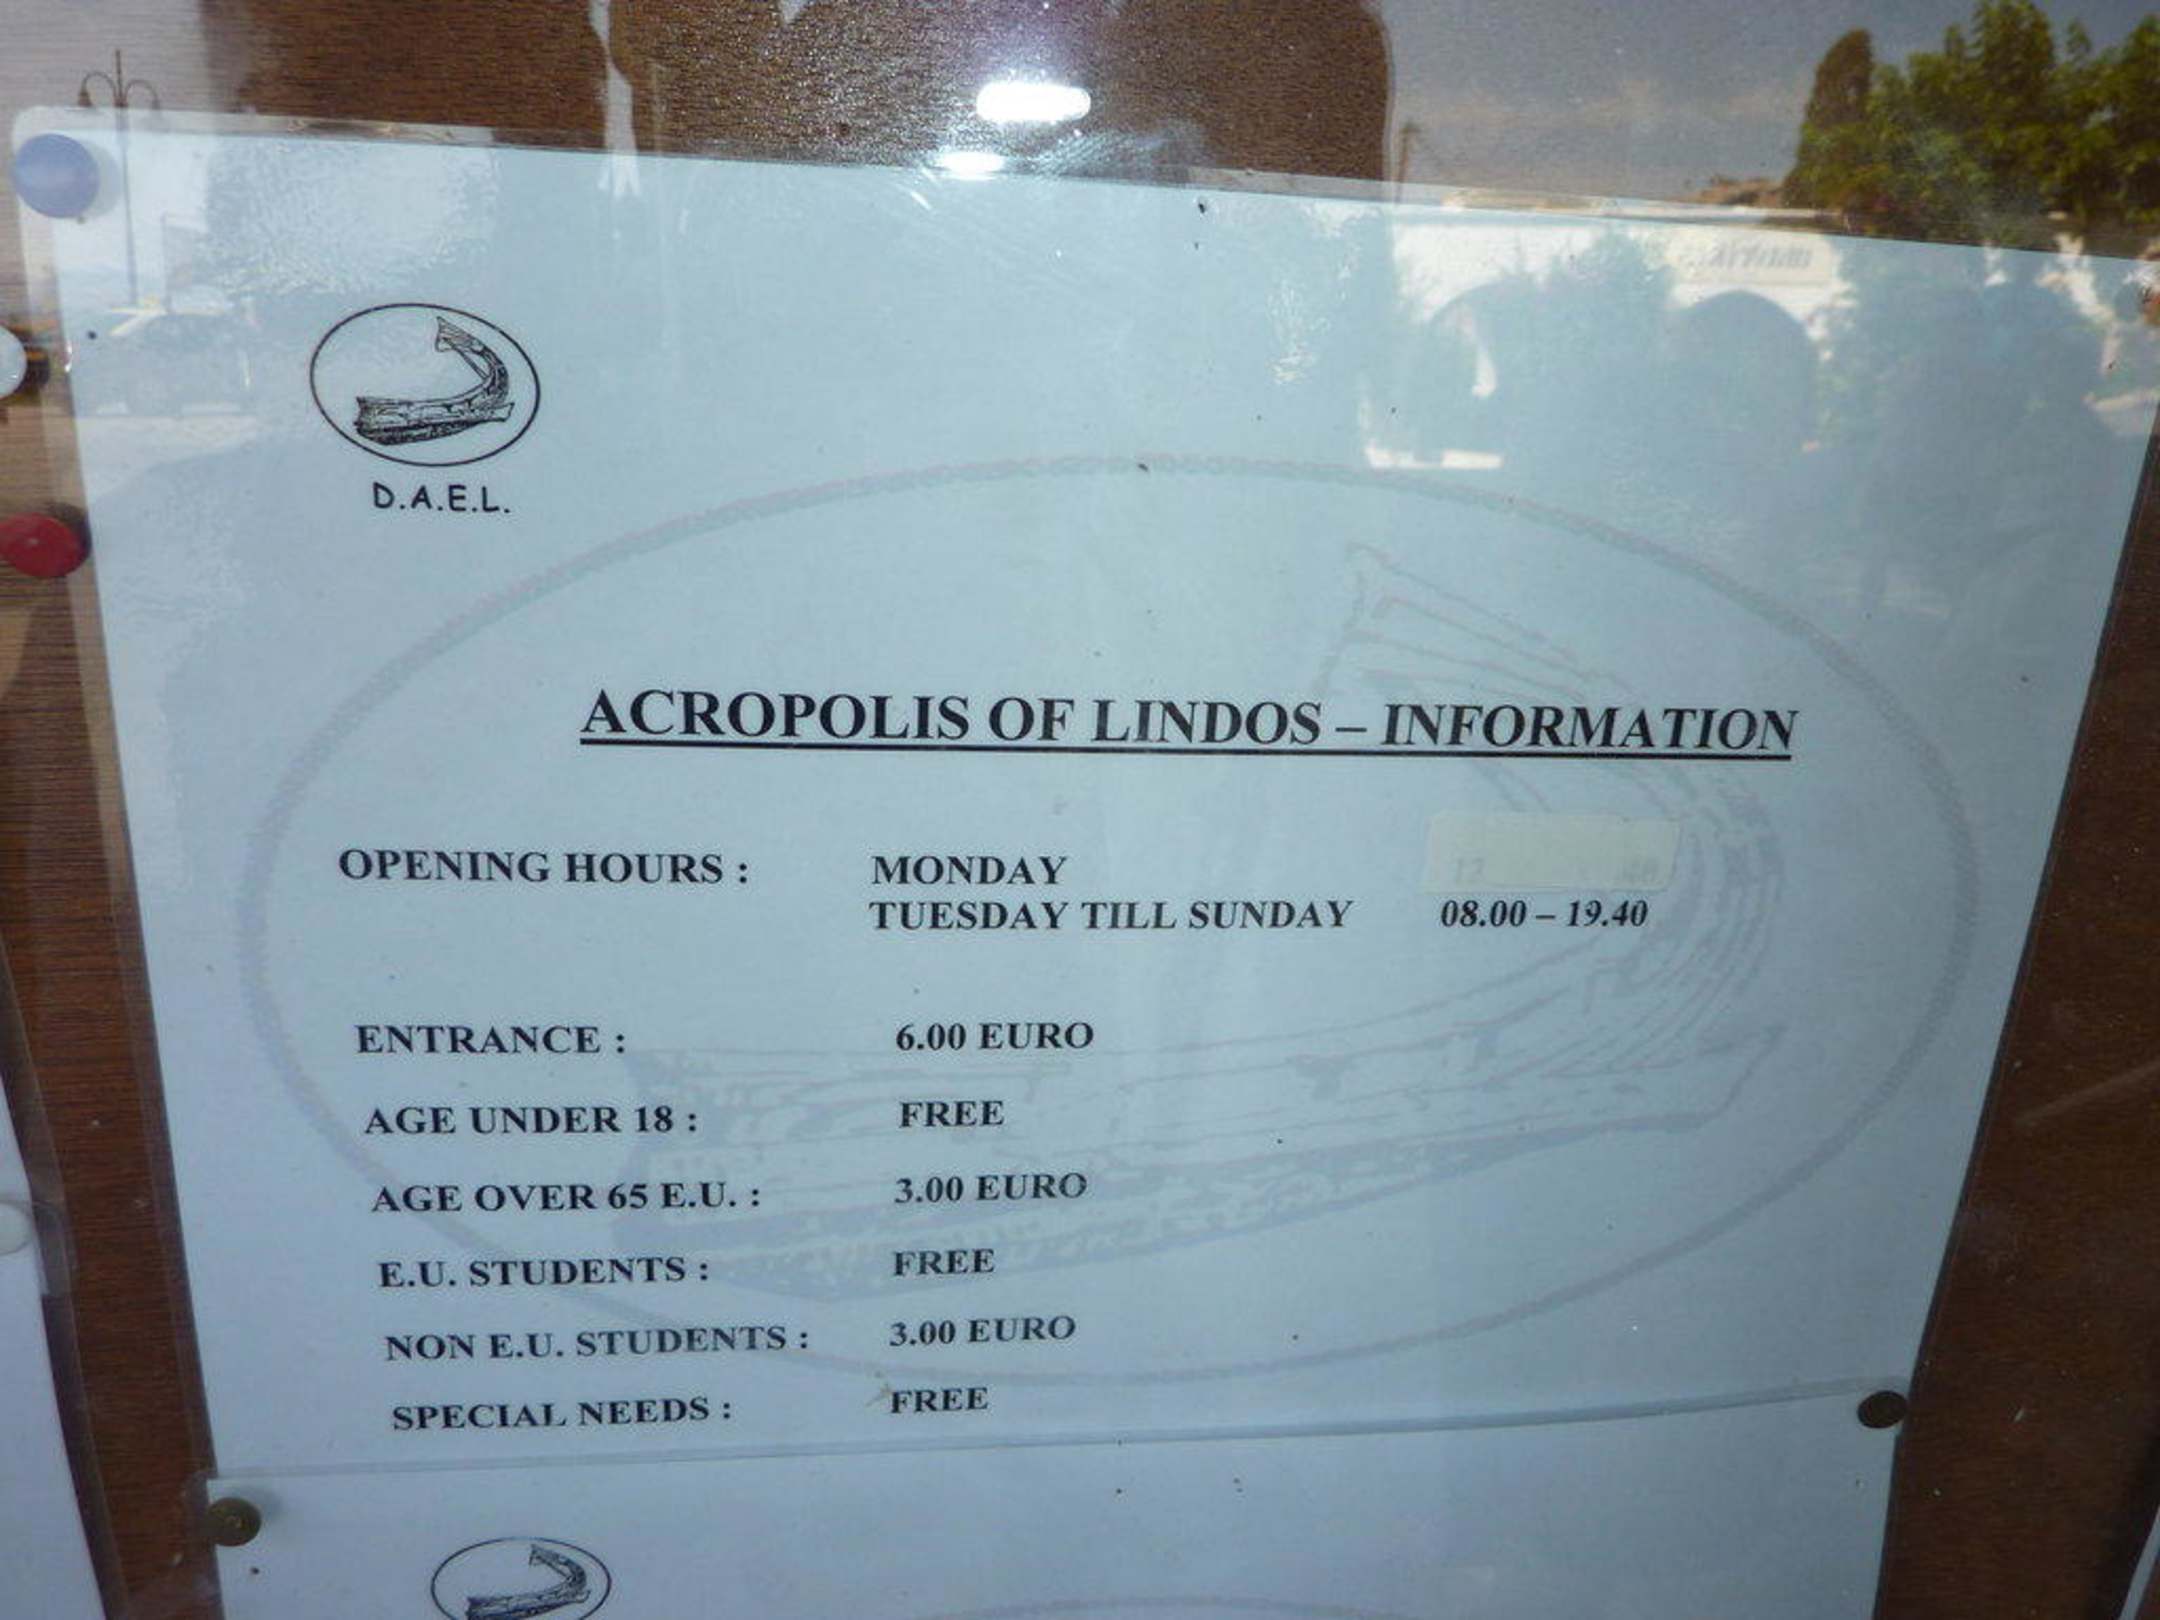 D.A.E.L.
ACROPOLIS OF LINDOS – INFORMATION
OPENING HOURS : MONDAY
TUESDAY TILL SUNDAY 08.00 – 19.40
ENTRANCE : 6.00 EURO
AGE UNDER 18 : FREE
AGE OVER 65 E.U. : 3.00 EURO
E.U. STUDENTS : FREE
NON E.U. STUDENTS : 3.00 EURO
SPECIAL NEEDS : FREE